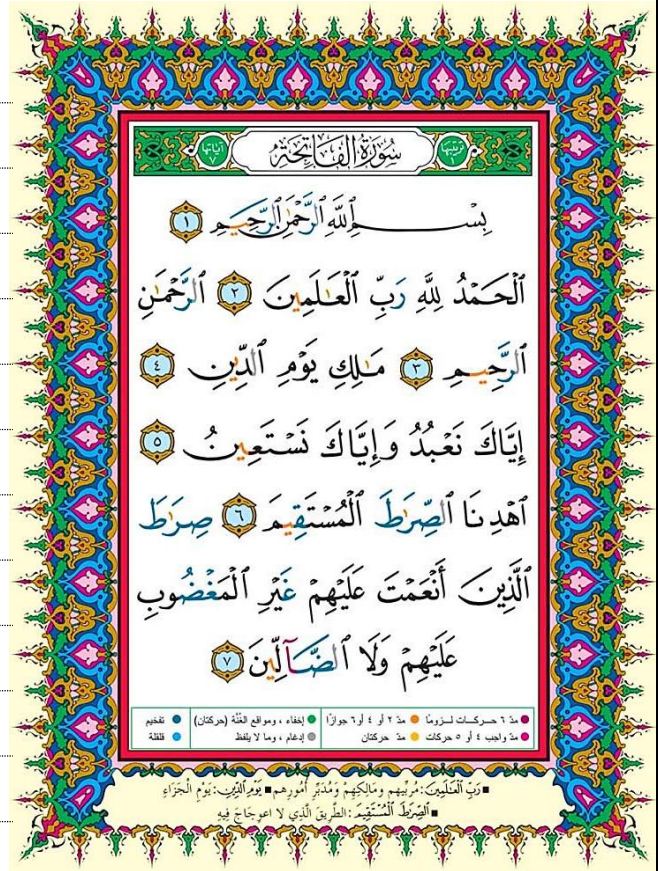 ترتيبها ١ سُورَةُ الفَاتِحَةِ آياتها ٧
بِسْمِ ٱللَّهِ ٱلرَّحْمَٰنِ ٱلرَّحِيمِ ١
ٱلْحَمْدُ لِلَّهِ رَبِّ ٱلْعَٰلَمِينَ ٢ ٱلرَّحْمَٰنِ
ٱلرَّحِيمِ ٣ مَٰلِكِ يَوْمِ ٱلدِّينِ ٤
إِيَّاكَ نَعْبُدُ وَإِيَّاكَ نَسْتَعِينُ ٥
ٱهْدِنَا ٱلصِّرَٰطَ ٱلْمُسْتَقِيمَ ٦ صِرَٰطَ
ٱلَّذِينَ أَنْعَمْتَ عَلَيْهِمْ غَيْرِ ٱلْمَغْضُوبِ
عَلَيْهِمْ وَلَا ٱلضَّآلِّينَ ٧
مدّ ٦ حركات لزوماً مدّ ٢ أو ٤ أو ٦ جوازاً إخفاء ، ومواقع الغنّة (حركتان) تفخيم
مدّ واجب ٤ أو ٥ حركات مدّ حركتان إدغام ، وما لا يلفظ قلقلة
رَبِّ ٱلْعَٰلَمِينَ : مُرَبِّيهِم وَمَالِكِهِمْ وَمُدَبِّر أُمُورِهِم يَوْمِ ٱلدِّينِ : يَوْمِ الْجَزَاءِ
ٱلصِّرَٰطَ ٱلْمُسْتَقِيمَ : الطَّرِيقَ الَّذِي لا اعْوِجَاجَ فِيهِ